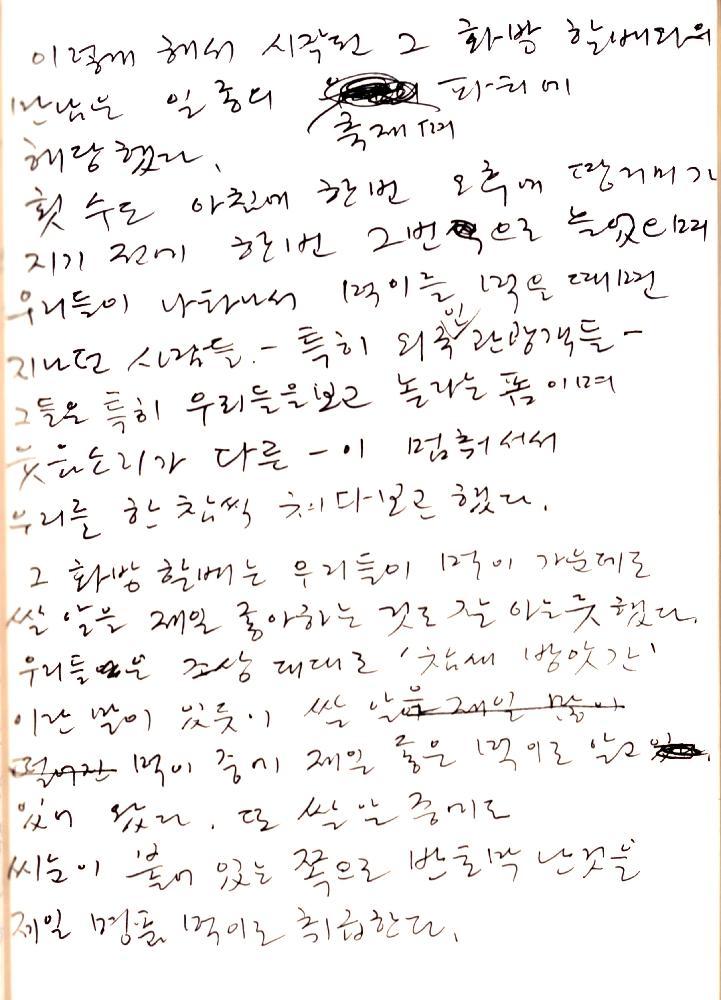 이렇게 해서 시작된 그 화방 할베와의
만남은 일종의 파티에
축제며
해당했다.
횟수도 아침에 한번 오후에 땅거미가
지기 전에 한번 2번으로 늘었으며
우리들이 나타나서 먹이를 먹을 때면
지나던 사람들 - 특히 외국인 관광객들 -
그들은 특히 우리들을보고 놀라는 폼이며
웃음소리가 다른 - 이 멈춰서서
우리를 한참씩 쳐다보곤 했다.
그 화방 할베는 우리들이 먹이 가운데로
쌀알을 제일 좋아하는 것도 잘 아는듯 했다.
우리들은 조상 대대로 '참새 방앗간'
이란 말이 있듯이 쌀알을 제일 많이
떨어진 먹이 중에 제일 좋은 먹이로 알고
있어 왔다. 또 쌀알 중에도
씨눈이 붙어 있는 쪽으로 반토막 난것을
제일 명품 먹이로 취급한다.